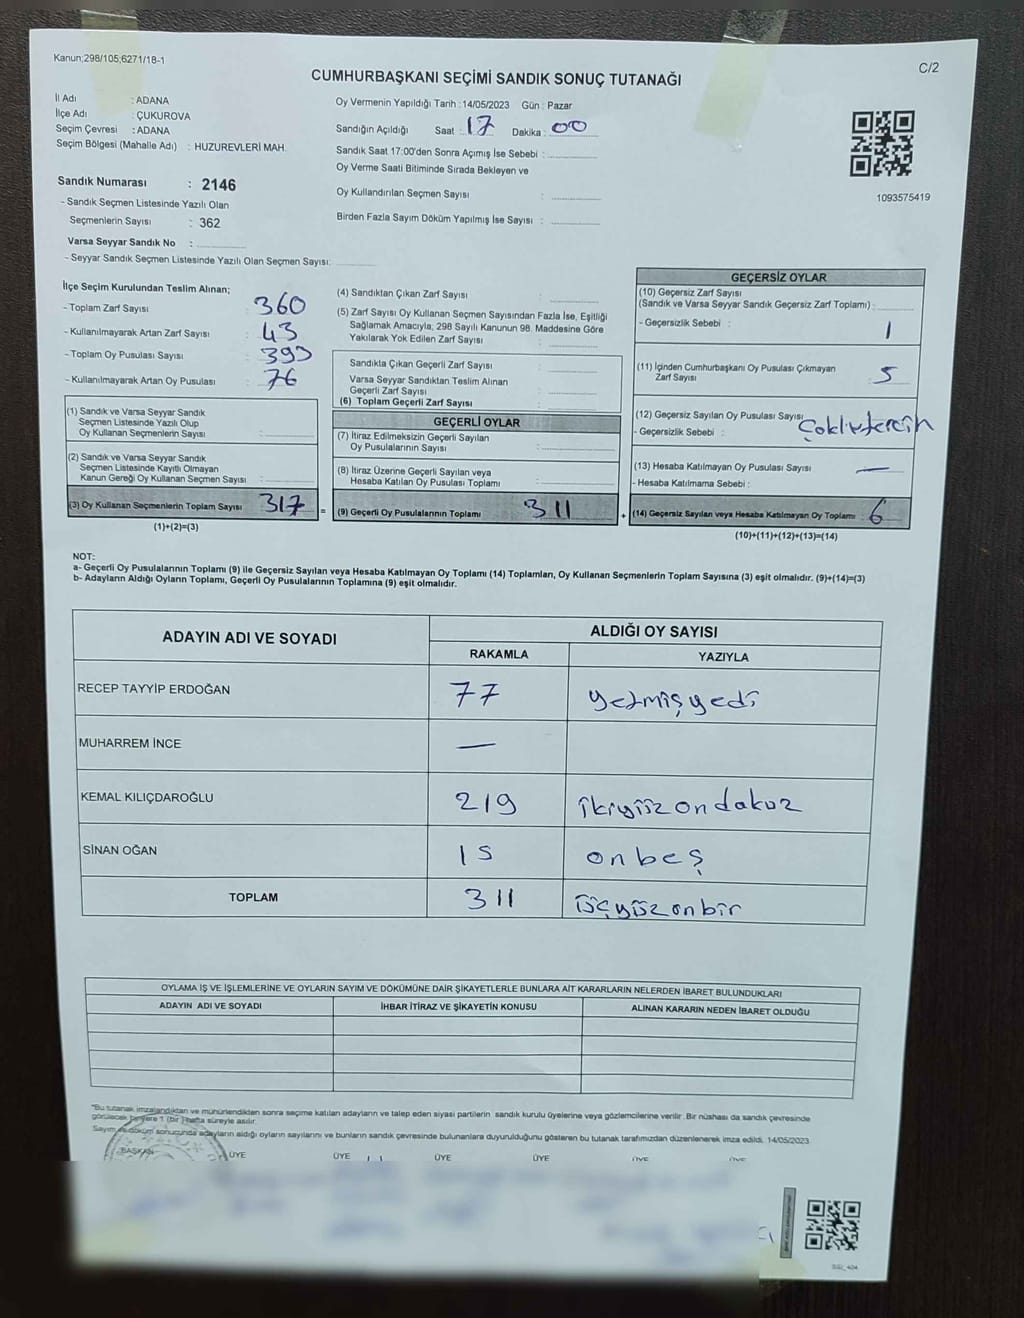 Kanun;298/105;6271/18-1
C/2
CUMHURBAŞKANI SEÇİMİ SANDIK SONUÇ TUTANAĞI
İl Adı : ADANA
İlçe Adı : ÇUKUROVA
Seçim Çevresi : ADANA
Seçim Bölgesi (Mahalle Adı) : HUZUREVLERİ MAH.
Sandık Numarası : 2146
- Sandık Seçmen Listesinde Yazılı Olan
Seçmenlerin Sayısı : 362
Varsa Seyyar Sandık No :
- Seyyar Sandık Seçmen Listesinde Yazılı Olan Seçmen Sayısı:
Oy Vermenin Yapıldığı Tarih : 14/05/2023 Gün : Pazar
Sandığın Açıldığı Saat : 17 Dakika : 00
Sandık Saat 17:00'den Sonra Açımış İse Sebebi :
Oy Verme Saati Bitiminde Sırada Bekleyen ve
Oy Kullandırılan Seçmen Sayısı :
Birden Fazla Sayım Döküm Yapılmış İse Sayısı :
1093575419
İlçe Seçim Kurulundan Teslim Alınan;
- Toplam Zarf Sayısı : 360
- Kullanılmayarak Artan Zarf Sayısı : 43
- Toplam Oy Pusulası Sayısı : 393
- Kullanılmayarak Artan Oy Pusulası : 76
(1) Sandık ve Varsa Seyyar Sandık
Seçmen Listesinde Yazılı Olup
Oy Kullanan Seçmenlerin Sayısı :
(2) Sandık ve Varsa Seyyar Sandık
Seçmen Listesinde Kayıtlı Olmayan
Kanun Gereği Oy Kullanan Seçmen Sayısı :
(3) Oy Kullanan Seçmenlerin Toplam Sayısı 317 =
(1)+(2)=(3)
(4) Sandıktan Çıkan Zarf Sayısı :
(5) Zarf Sayısı Oy Kullanan Seçmen Sayısından Fazla İse, Eşitliği
Sağlamak Amacıyla; 298 Sayılı Kanunun 98. Maddesine Göre
Yakılarak Yok Edilen Zarf Sayısı :
Sandıkta Çıkan Geçerli Zarf Sayısı :
Varsa Seyyar Sandıktan Teslim Alınan
Geçerli Zarf Sayısı :
(6) Toplam Geçerli Zarf Sayısı :
GEÇERLİ OYLAR
(7) İtiraz Edilmeksizin Geçerli Sayılan
Oy Pusulalarının Sayısı :
(8) İtiraz Üzerine Geçerli Sayılan veya
Hesaba Katılan Oy Pusulası Toplamı :
(9) Geçerli Oy Pusulalarının Toplamı 311 +
GEÇERSİZ OYLAR
(10) Geçersiz Zarf Sayısı
(Sandık ve Varsa Seyyar Sandık Geçersiz Zarf Toplamı) :
- Geçersizlik Sebebi : 1
(11) İçinden Cumhurbaşkanı Oy Pusulası Çıkmayan
Zarf Sayısı : 5
(12) Geçersiz Sayılan Oy Pusulası Sayısı :
- Geçersizlik Sebebi :
(13) Hesaba Katılmayan Oy Pusulası Sayısı : —
- Hesaba Katılmama Sebebi :
(14) Geçersiz Sayılan veya Hesaba Katılmayan Oy Toplamı : 6
(10)+(11)+(12)+(13)=(14)
NOT:
a- Geçerli Oy Pusulalarının Toplamı (9) ile Geçersiz Sayılan veya Hesaba Katılmayan Oy Toplamı (14) Toplamları, Oy Kullanan Seçmenlerin Toplam Sayısına (3) eşit olmalıdır. (9)+(14)=(3)
b- Adayların Aldığı Oyların Toplamı, Geçerli Oy Pusulalarının Toplamına (9) eşit olmalıdır.
ADAYIN ADI VE SOYADI ALDIĞI OY SAYISI
RAKAMLA YAZIYLA
RECEP TAYYİP ERDOĞAN 77 yetmişyedi
MUHARREM İNCE —
KEMAL KILIÇDAROĞLU 219 ikiyüzondokuz
SİNAN OĞAN 15 onbeş
TOPLAM 311 üçyüzonbir
OYLAMA İŞ VE İŞLEMLERİNE VE OYLARIN SAYIM VE DÖKÜMÜNE DAİR ŞİKAYETLERLE BUNLARA AİT KARARLARIN NELERDEN İBARET BULUNDUKLARI
ADAYIN ADI VE SOYADI İHBAR İTİRAZ VE ŞİKAYETİN KONUSU ALINAN KARARIN NEDEN İBARET OLDUĞU
"Bu tutanak imzalandıktan ve mühürlendikten sonra seçime katılan adayların ve talep eden siyasi partilerin sandık kurulu üyelerine veya gözlemcilerine verilir. Bir nüshası da sandık çevresinde
görülecek bir yere 1 (bir) hafta süreyle asılır.
Sayım ve döküm sonucunda adayların aldığı oyların sayılarını ve bunların sandık çevresinde bulunanlara duyurulduğunu gösteren bu tutanak tarafımızdan düzenlenerek imza edildi. 14/05/2023
BAŞKAN ÜYE ÜYE ÜYE ÜYE ÜYE ÜYE